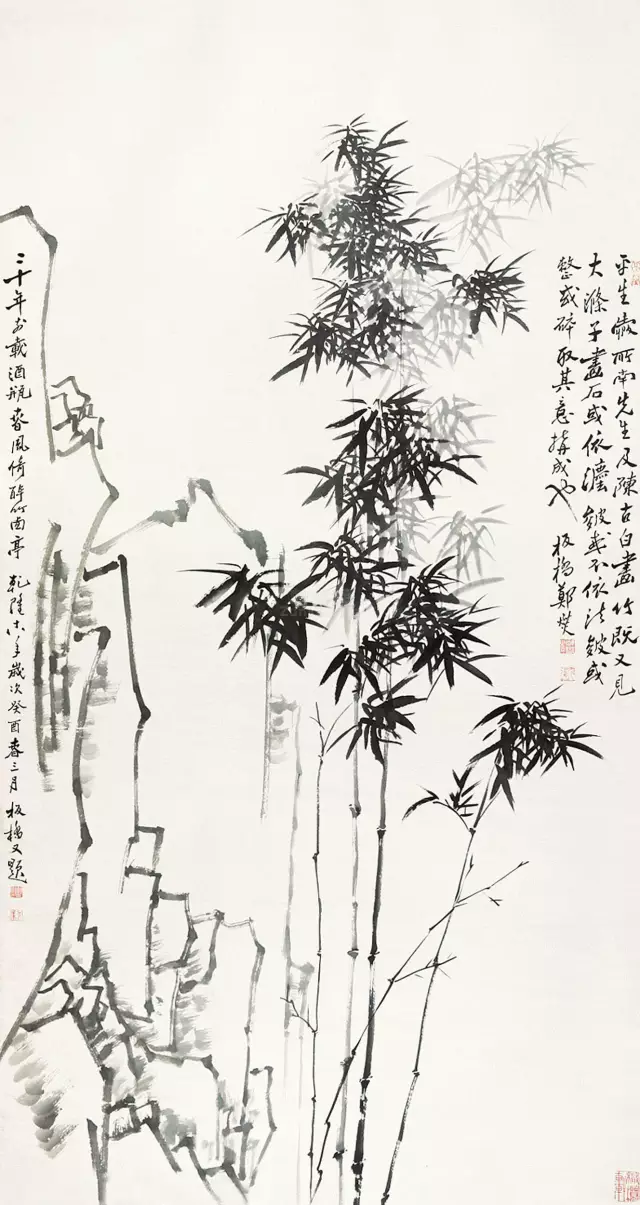 平生愛所南先生及陳古白畫竹既又見
大滌子畫石或依法皴或不依法皴或
整或碎取其意搆成也 板橋鄭燮
三十年前載酒瓶春風倚醉竹西亭 乾隆十八年歲次癸酉春三月板橋又題